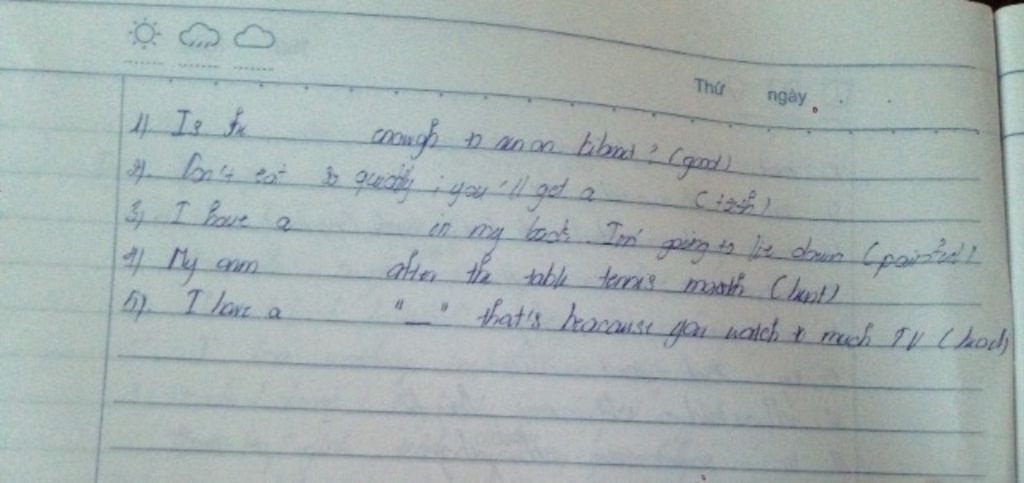 Thứ ngày
1) Is enough to run on ? (good)
2) Don't eat so quickly ; you'll get a
3) I have a in my back. I'm going to lie down (painful)
4) My arm after the table tennis (hurt)
5) I have a "__" that's beacause you watch to much TV (head)